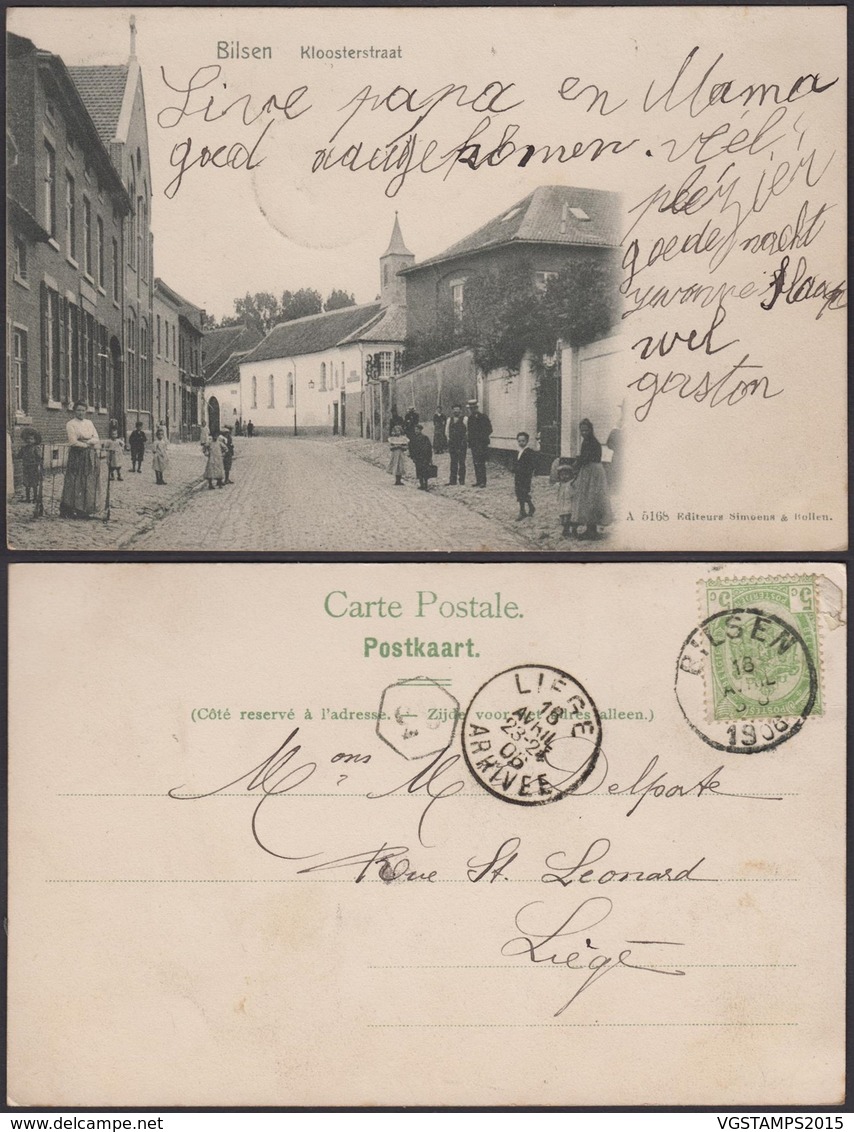 Bilsen Kloosterstraat
Live papa en Mama
goed aangekomen. veel
plezier
goede nacht
yvonne slaap
wel
gaston
A 5168 Editeurs Simoens & Hollen.
Carte Postale.
Postkaart.
(Côté reservé à l'adresse. — Zijde voor het adres alleen.)
5c 5c
BILSEN
18
AVRIL
1906
LIEGE
18
AVRIL
23-24
06
ARRIVEE
Mons M Delporte
Rue St. Leonard
Liégé
VGSTAMPS2015